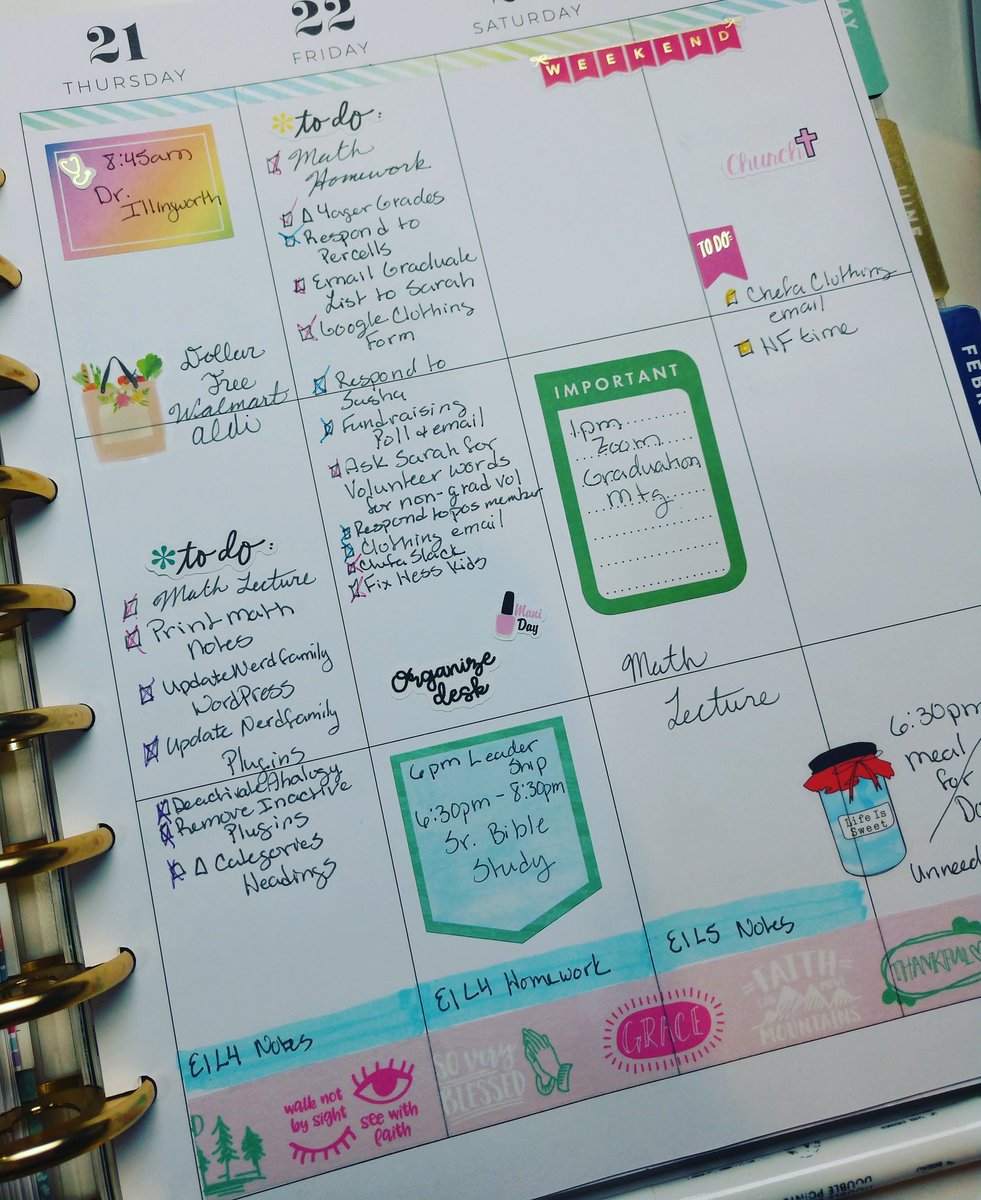 21
THURSDAY
8:45am
Dr.
Illingworth
Dollar
Free
Walmart
aldi
to do:
Math Lecture
Print math
Notes
Update Nerdfamily
WordPress
Update Nerdfamily
Plugins
Deactivate
Remove Inactive
Plugins
Δ Categories
Headings
E1L4 Notes
walk not
by sight
see with
faith
22
FRIDAY
to do:
Math
Homework
Δ 4ager Grades
Respond to
Percells
Email Graduate
List to Sarah
Google Clothing
Form
Respond to
Sasha
Fundraising
Poll & email
Ask Sarah for
Volunteer words
for non-grad vol
Respond to pos member
Clothing email
Chefa Slack
Fix Hess Kids
Mani
Day
Organize
desk
6pm Leader
Ship
6:30pm - 8:30pm
Sr. Bible
Study
E1L4 Homework
SO very
BLESSED
GRACE
SATURDAY
WEEKEND
IMPORTANT
1pm
Zoom
Graduation
mtg.
Math
Lecture
E1L5 Notes
FAITH
CAN MOVE
MOUNTAINS
Church
TO DO:
Chefa Clothing
email
NF time
6:30pm
meal
for
Life Is
Sweet
THANKFUL
JUNE
FEB